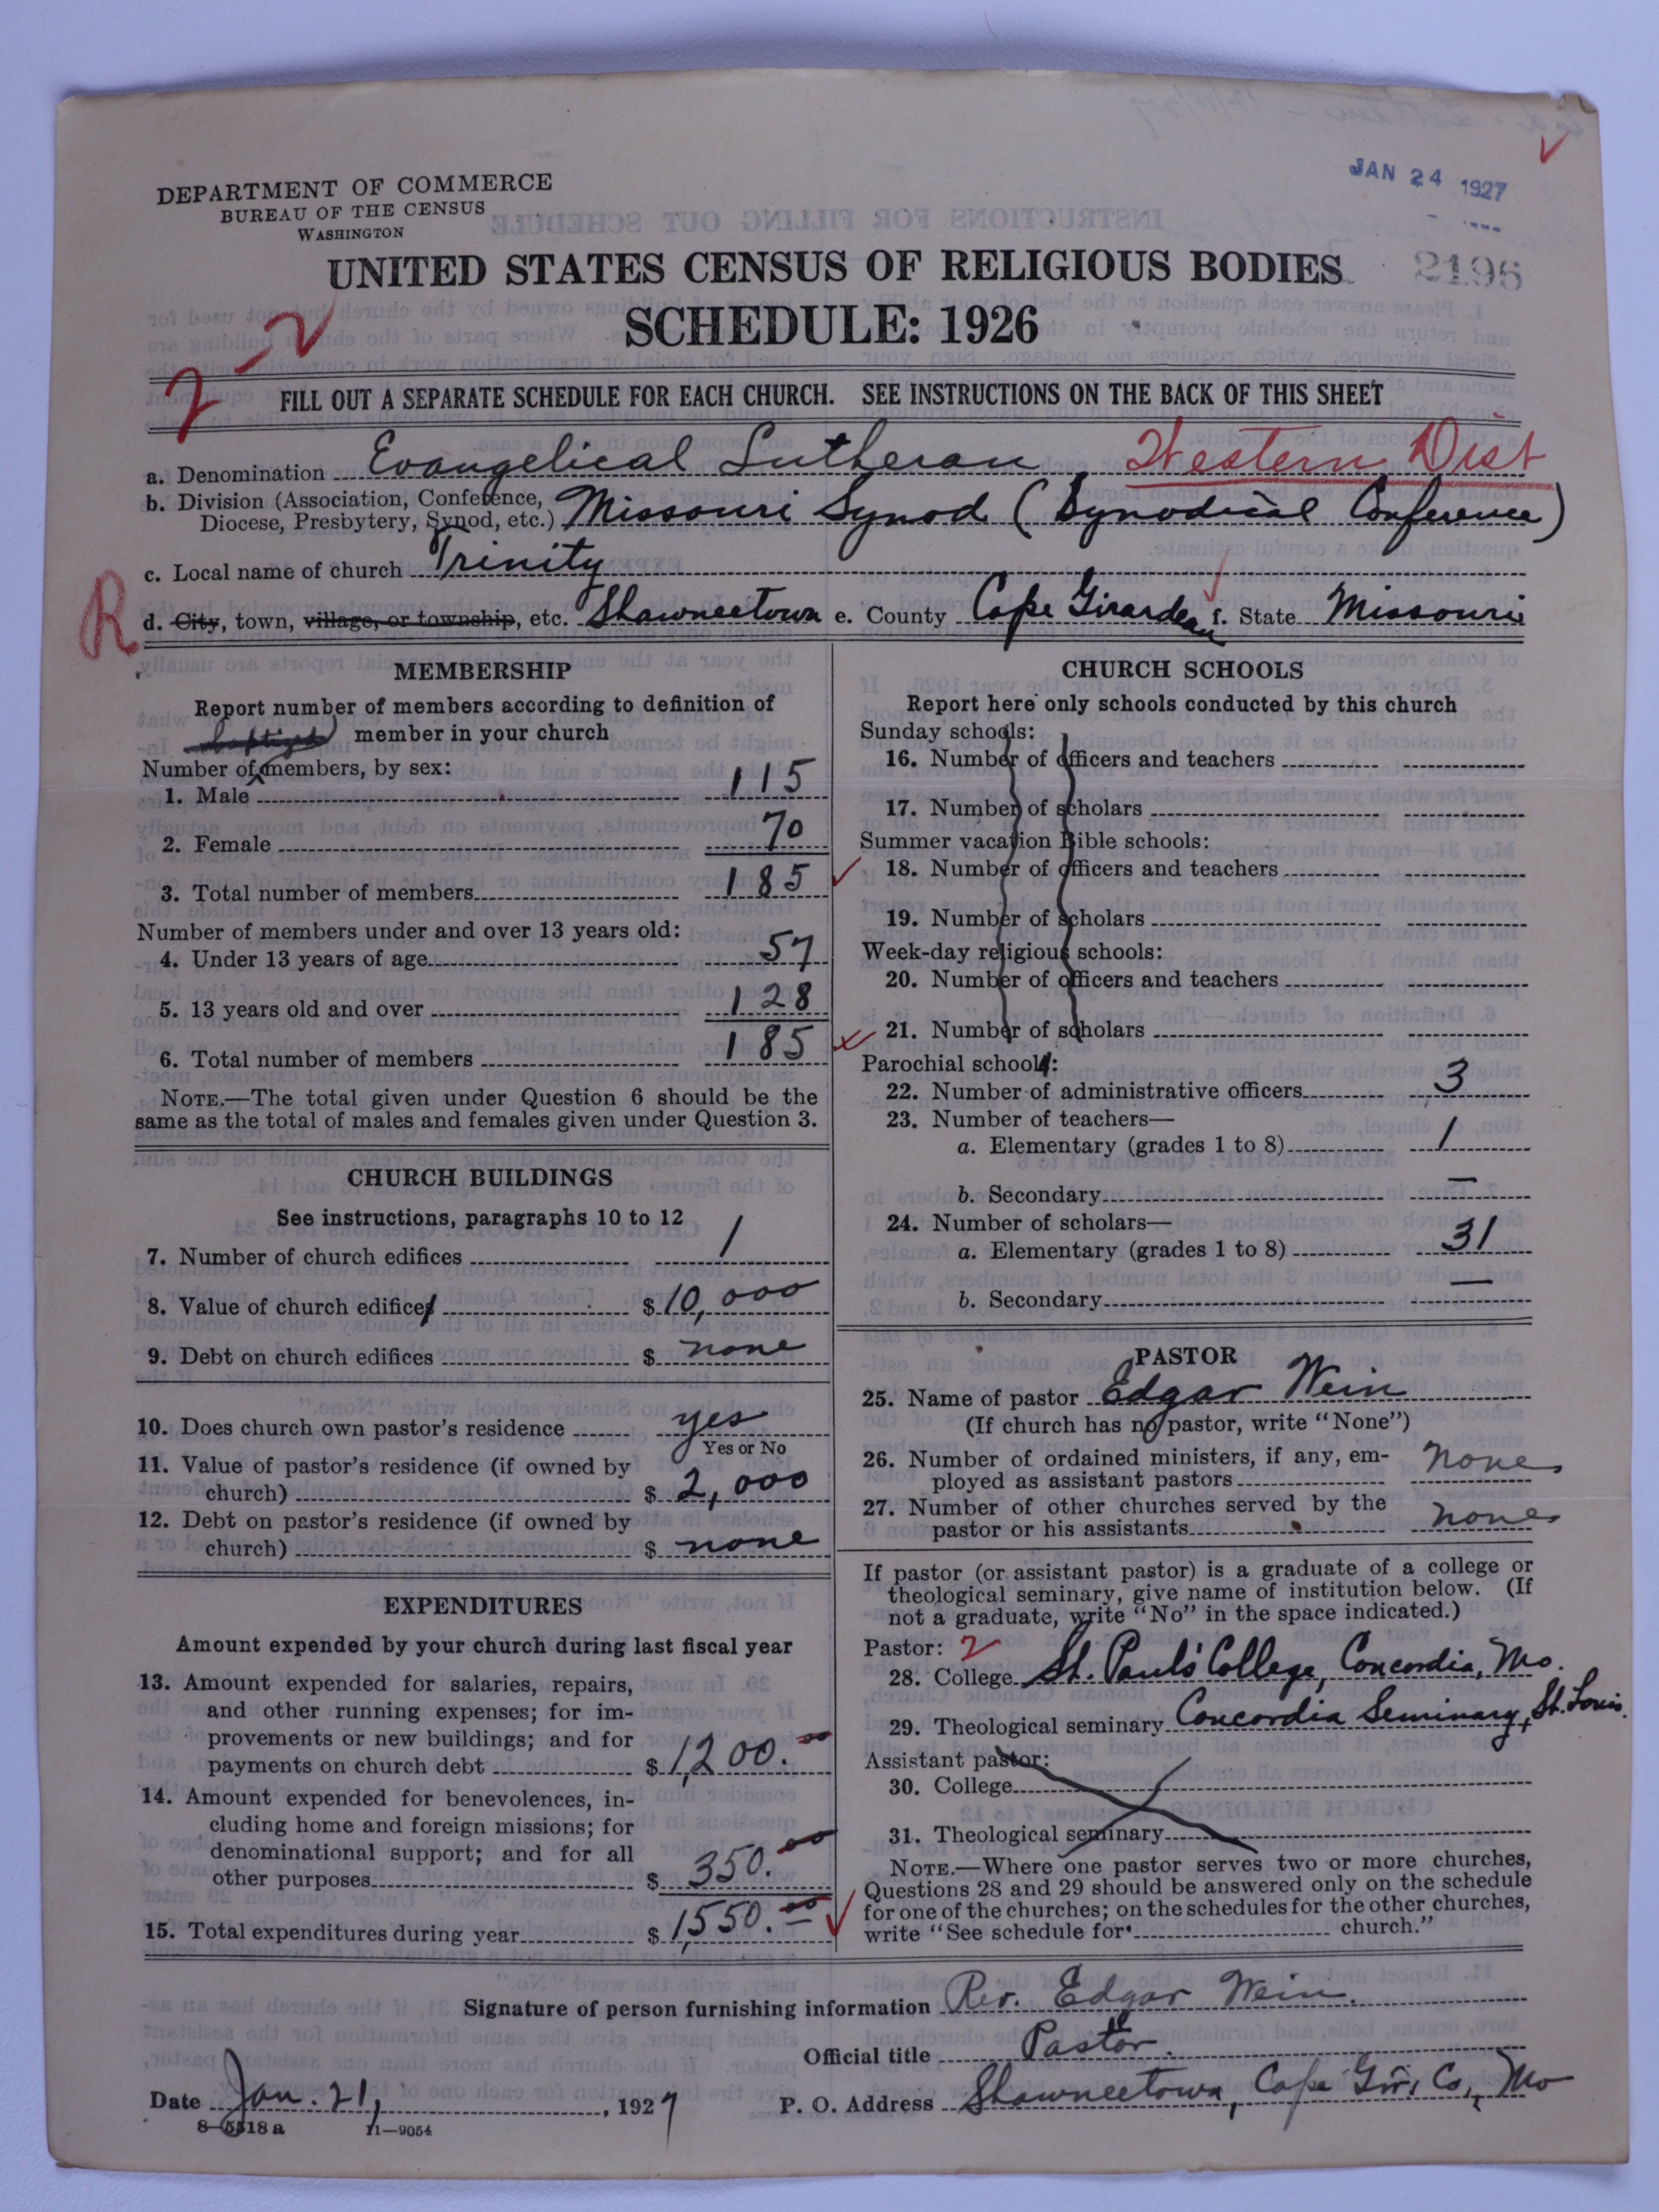 JAN 24 1927
DEPARTMENT OF COMMERCE
BUREAU OF THE CENSUS
WASHINGTON
2196
UNITED STATES CENSUS OF RELIGIOUS BODIES
SCHEDULE: 1926
2-2
FILL OUT A SEPARATE SCHEDULE FOR EACH CHURCH. SEE INSTRUCTIONS ON THE BACK OF THIS SHEET
a. Denomination Evangelical Lutheran Western Dist
b. Division (Association, Conference, Diocese, Presbytery, Synod, etc.) Missouri Synod (Synodical Conference)
c. Local name of church Trinity
R
d. City, town, village, or township, etc. Shawneetown e. County Cape Girardeau f. State Missouri
MEMBERSHIP
Report number of members according to definition of
member in your church
(baptized)
Number of members, by sex:
1. Male 115
2. Female 70
3. Total number of members 185
Number of members under and over 13 years old:
4. Under 13 years of age 57
5. 13 years old and over 128
6. Total number of members 185
NOTE.—The total given under Question 6 should be the
same as the total of males and females given under Question 3.
CHURCH BUILDINGS
See instructions, paragraphs 10 to 12
7. Number of church edifices 1
8. Value of church edifices $ 10,000
9. Debt on church edifices $ none
10. Does church own pastor's residence yes
Yes or No
11. Value of pastor's residence (if owned by
church) $ 2,000
12. Debt on pastor's residence (if owned by
church) $ none
EXPENDITURES
Amount expended by your church during last fiscal year
13. Amount expended for salaries, repairs,
and other running expenses; for im-
provements or new buildings; and for
payments on church debt $ 1,200.00
14. Amount expended for benevolences, in-
cluding home and foreign missions; for
denominational support; and for all
other purposes $ 350.00
15. Total expenditures during year $ 1,550.00
CHURCH SCHOOLS
Report here only schools conducted by this church
Sunday schools:
16. Number of officers and teachers
17. Number of scholars
Summer vacation Bible schools:
18. Number of officers and teachers
19. Number of scholars
Week-day religious schools:
20. Number of officers and teachers
21. Number of scholars
Parochial schools:
22. Number of administrative officers 3
23. Number of teachers—
a. Elementary (grades 1 to 8) 1
b. Secondary —
24. Number of scholars—
a. Elementary (grades 1 to 8) 31
b. Secondary —
PASTOR
25. Name of pastor Edgar Wein
(If church has no pastor, write "None")
26. Number of ordained ministers, if any, em-
ployed as assistant pastors none
27. Number of other churches served by the
pastor or his assistants none
If pastor (or assistant pastor) is a graduate of a college or
theological seminary, give name of institution below. (If
not a graduate, write "No" in the space indicated.)
Pastor: 2
28. College St. Paul's College, Concordia, Mo.
29. Theological seminary Concordia Seminary, St. Louis.
Assistant pastor:
30. College
31. Theological seminary
NOTE.—Where one pastor serves two or more churches,
Questions 28 and 29 should be answered only on the schedule
for one of the churches; on the schedules for the other churches,
write "See schedule for church."
Signature of person furnishing information Rev. Edgar Wein.
Official title Pastor.
Date Jan. 21, 1927 P. O. Address Shawneetown, Cape Gir. Co., Mo
8—5518 a 11—9054